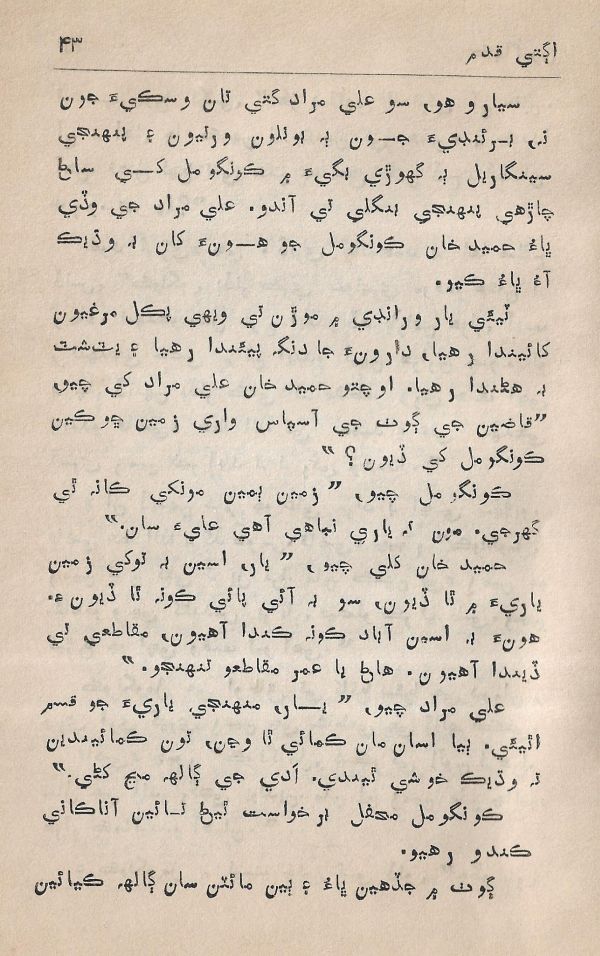 اڳتي قدم
۴۳
سيارو هو، سو علي مراد گتي تان وسڪيءَ جون
نہ، برئنڊيءَ جون ٻہ بوتلون ورتيون ۽ پنهنجي
سينگاريل ٻہ گهوڙي بگيءَ ۾ ڪونگو مل کي ساڻ
چاڙهي پنهنجي بنگلي تي آندو. علي مراد جي وڏي
ڀاءُ حميد خان ڪونگومل جو هونءَ کان بہ وڌيڪ
آءُ ڀاءُ ڪيو.
ٽيئي يار ورانڊي ۾ موڙن تي ويهي پڪل مرغيون
کائيندا رهيا، دارونءَ جا دنگ پيئندا رهيا ۽ پٽشٽ
بہ هڻندا رهيا. اوچتو حميد خان علي مراد کي چيو،
”قاضين جي ڳوٺ جي آسپاس واري زمين ڇوڪين
ڪونگو مل کي ڏيون؟“
ڪونگو مل چيو، ”زمين بمين مونکي ڪانہ ٿي
گهرجي. مون تہ ياري نباهي آهي عليءَ سان.“
حميد خان کلي چيو، ”يار، اسين بہ توکي زمين
ياريءَ ۾ ٿا ڏيون، سو بہ آڻي پائي ڪونہ ٿا ڏيون ءِ.
هونءَ بہ اسين آباد ڪونہ ڪندا آهيون، مقاطعي تي
ڏيندا آهيون. هاڻ يا عمر مقاطعو تنهنجو.“
علي مراد چيو، ”يار، منهنجي ياريءَ جو قسم
اٿيئي. ٻيا اسان مان ڪمائي ٿا وڃن، تون ڪمائيندين
تہ وڌيڪ خوشي ٿيندي. اَدي جي ڳالهہ مڃ کڻي.“
ڪونگو مل محفل برخواست ٿيڻ تائين آناڪاني
ڪندو رهيو.
ڳوٺ ۾ جڏهين ڀاءُ ۽ ٻين مائٽن سان ڳالهہ ڪيائين